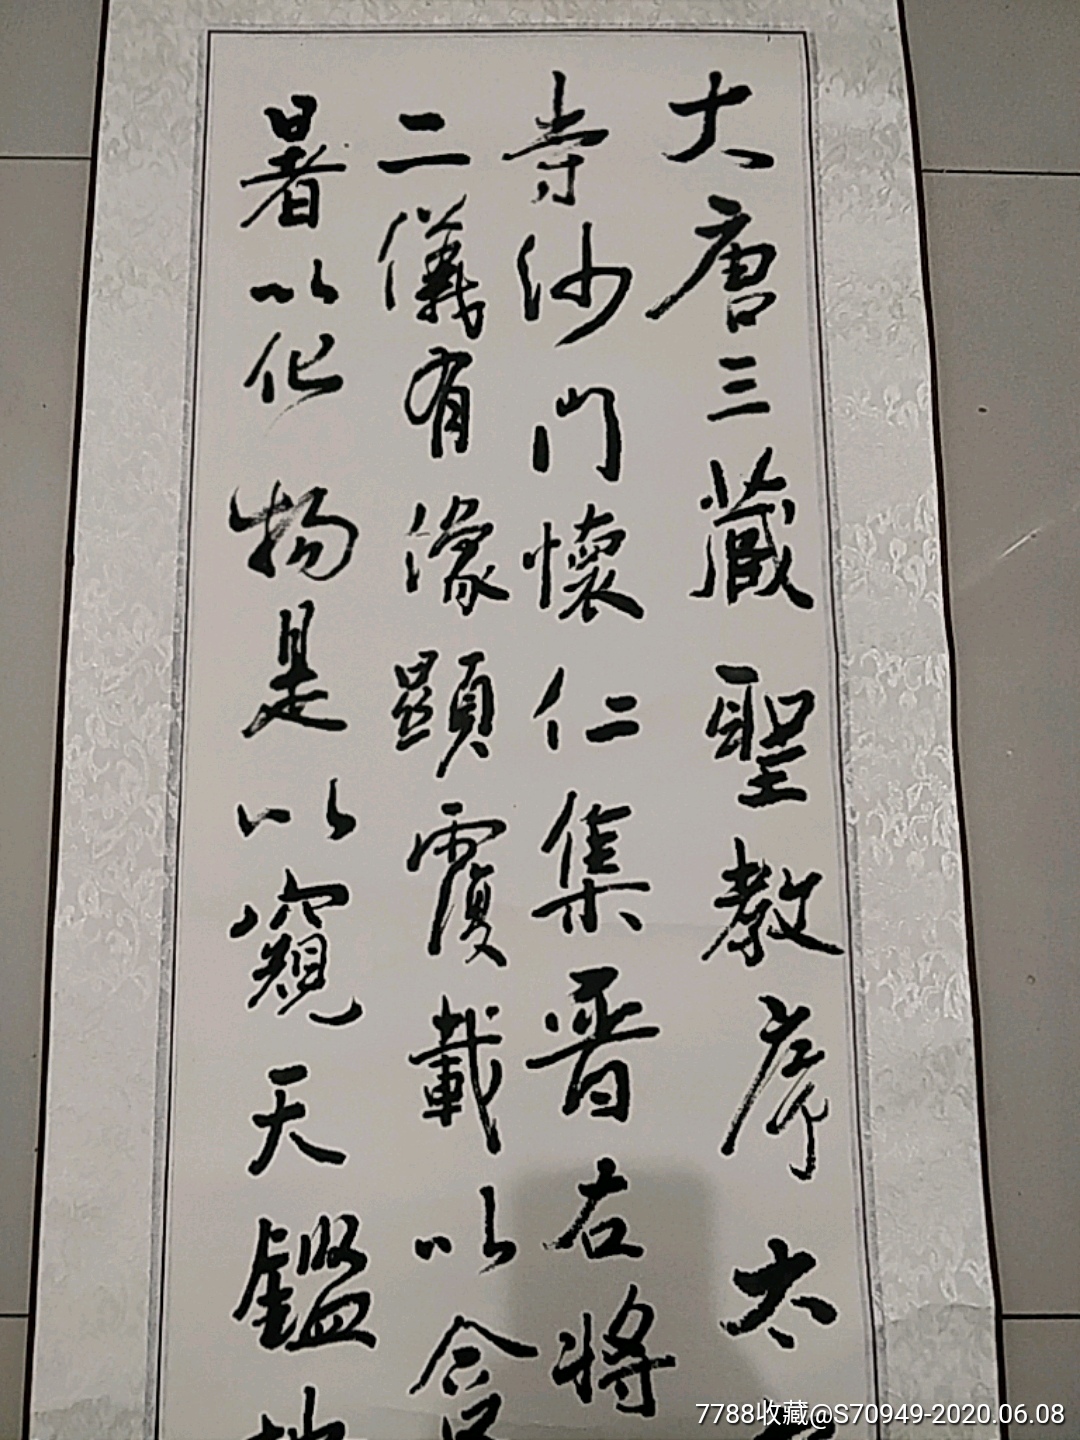 大唐三藏聖教序太
寺沙門懷仁集晋右將
二儀有像顯覆載以含
暑以化物是以窺天鑑地
7788收藏@S70949-2020.06.08